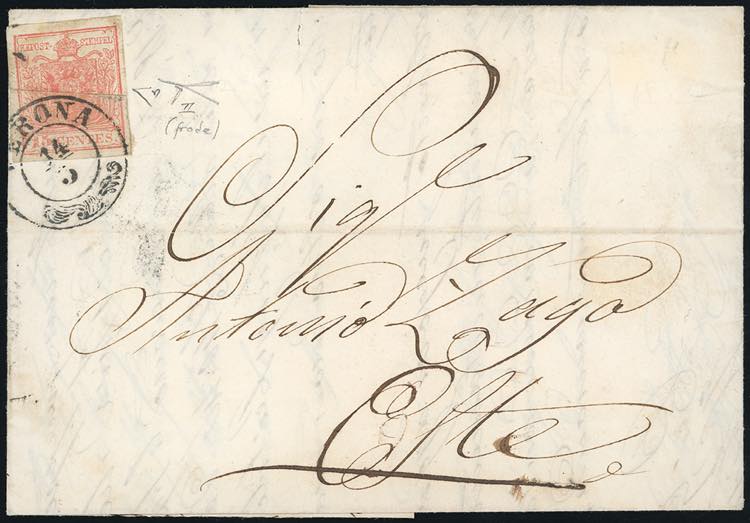 KKPOST-STEMPEL
CENTES
VERONA
14
5
II
(frode)
Sigr
Antonio Zago
Este